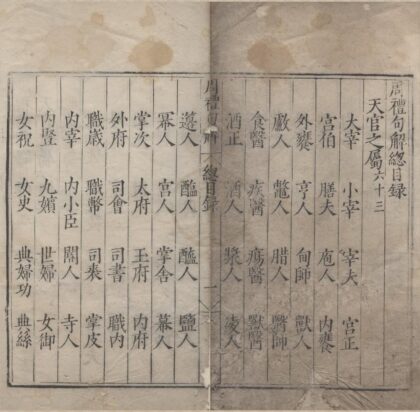 周禮句解總目錄
天官之屬六十三
大宰 小宰 宰夫 宮正
宮伯 膳夫 庖人 內饔
外饔 亨人 甸師 獸人
人 鼈人 腊人 醫師
食醫 疾醫 瘍醫 獸醫
酒正 酒人 漿人 凌人
周禮句解 總目錄 一
籩人 醢人 醯人 鹽人
冪人 宮人 掌舍 幕人
掌次 太府 玉府 內府
外府 司會 司書 職內
職歲 職幣 司裘 掌皮
內宰 內小臣 閽人 寺人
內豎 九嬪 世婦 女御
女祝 女史 典婦功 典絲